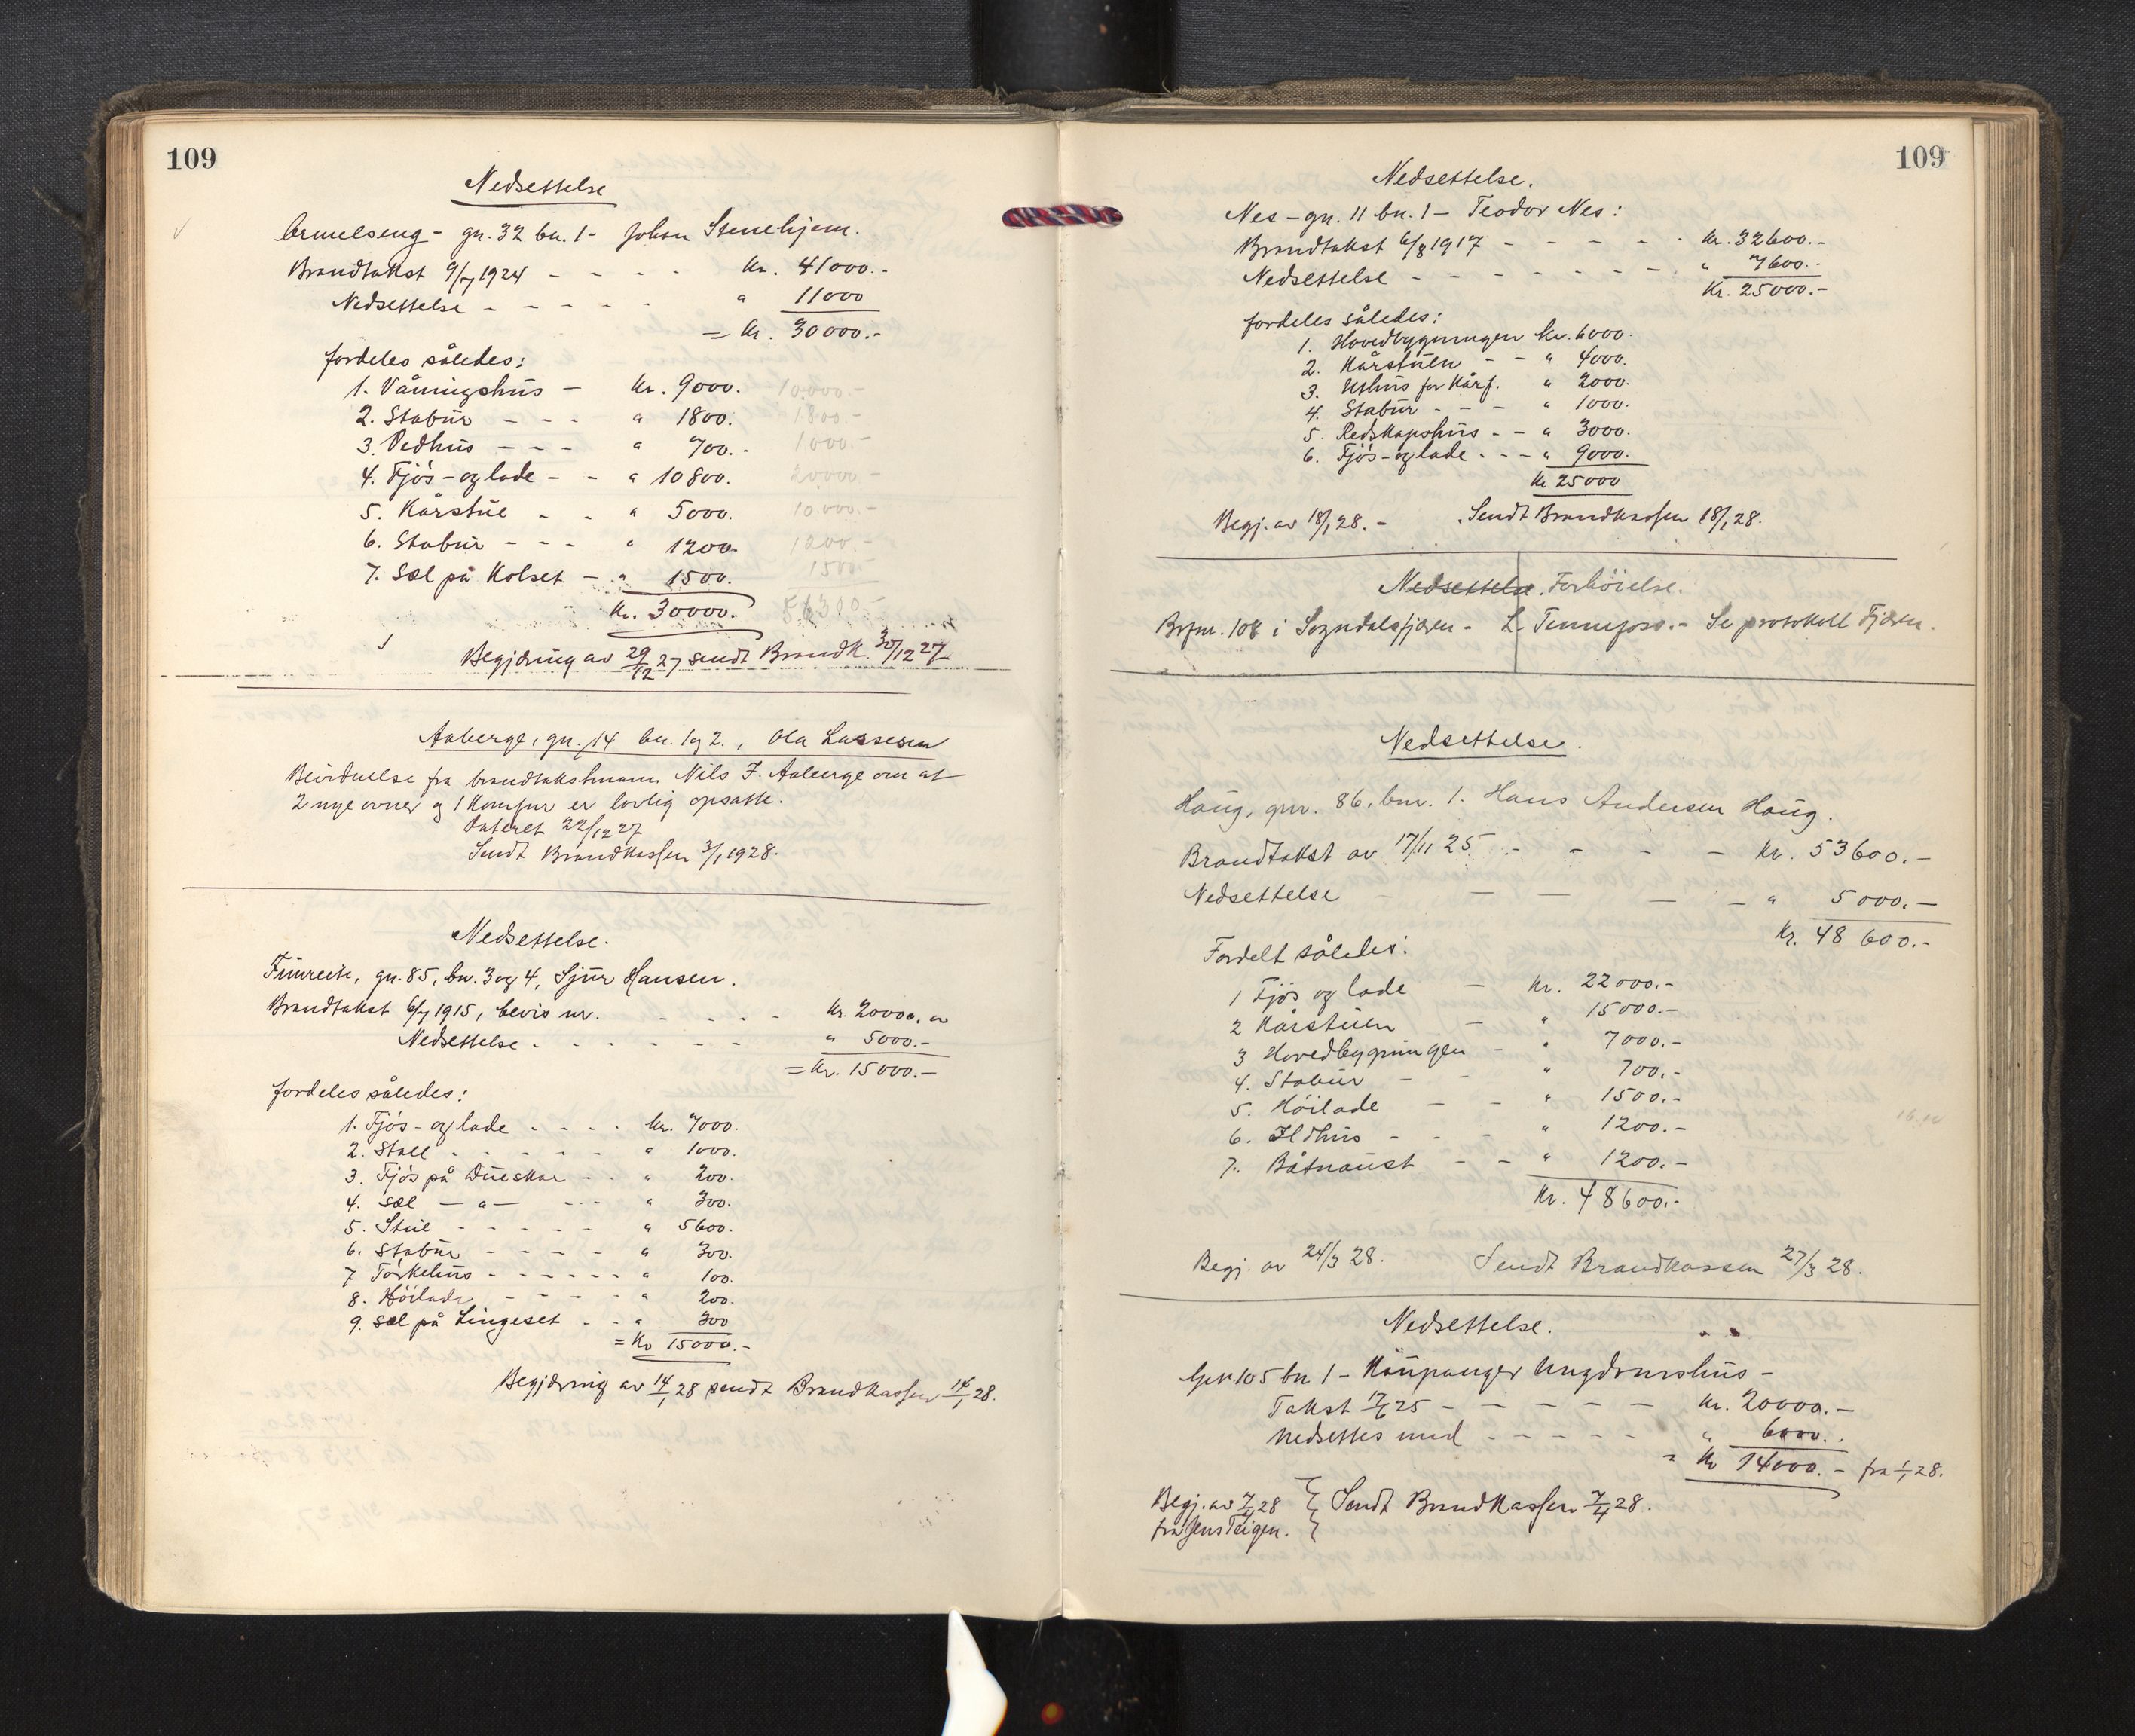 109
Nedsettelse
Ornelseng - gn. 32 bn. 1 - Johan Stenehjem.
Brandtakst 9/7 1924 - - - - Kr. 41000.-
Nedsettelse - - - - - " 11000
= Kr. 30000.-
fordeles således:
1. Våningshus - Kr. 9000. 10.000.-
2. Stabur - - - " 1800. 1800 -
3. Vedhus - - - " 700.- 1000.-
4. Fjøs- og lade - - " 10800. 20000 -
5. Kårstue - - " 5000. 10.000.-
6. Stabur - - - " 1200.-
7. Sæl på Kolset - " 1500. 1500
Kr. 30000.-
Begjæring av 29/12 27 sendt Brandk. 30/12 27
Aaberge, gn. 14 bn. 1 og 2., Ola Lassesen
Bevidnelse fra brandtakstmann Nils J. Aaberge om at
2 nye ovner og 1 komfur er lovlig opsatte.
Datert 22/12 27
Sendt Brandkassen 3/1 1928.
Nedsettelse.
Fimreite, gn. 85, bn. 3 og 4, Sjur Hansen.
Brandtakst 6/7 1915, bevis nr. - - - - Kr. 20000.00
Nedsettelse - - - - - - " 5000.-
= Kr. 15000.-
fordeles således:
1. Fjøs- og lade - - - - kr. 7000.
2. Stall - - - - - - " 1000.
3. Fjøs på Dueskar - - " 200.
4. Sæl - " - - - - " 300.
5. Stue - - - - - " 5600.
6. Stabur - - - - " 300.
7 Tørkehus - - - - - - " 100.
8. Høilade - - - - " 200.
9. Sæl på Lingeset - - " 300
= Kr 15000.-
Begjæring av 14/1 28 sendt Brandkassen 14/1 28.
109
Nedsettelse.
Nes - gn. 11 bn. 1 - Teodor Nes:
Brandtakst 6/8 1917 - - - - - Kr. 32600.-
Nedsettelse - - - - - - - - " 7600.-
Kr. 25000.-
fordeles således:
1. Hovedbygningen kr. 6000.
2. Kårstuen - - " 4000.
3. Uthus for Kårf. " 2000.
4. Stabur - - - " 1000.
5. Redskapshus - - " 3000.
6. Fjøs- og lade - - - " 9000.
Kr 25000
Begj. av 18/1 28. - Sendt Brandkassen 18/1 28.
Nedsettelse. Forhöielse.
Brfnr. 108 i Sogndalsfjæren - L. - Se protokoll Fjæren.
Nedsettelse.
Haug, gnr. 86, bnr. 1. Hans Andersen Haug.
Brandtakst av 17/11 25 - - - - Kr. 53600.-
Nedsettelse - - - - - " 5000.-
Kr. 48 600.-
Fordelt således:
1 Fjös og lade - Kr. 22000.-
2 Kårstuen - " 15000.-
3 Hovedbygningen - " 7000.-
4. Stabur - - " 700.-
5. Höilade - - " 1500.-
6. Ildhus - - - " 1200.-
7. Båtnaust - - " 1200.-
Kr. 48600.-
Begj. av 24/3 28. Sendt Brandkassen 27/3 28.
Nedsettelse.
Gnr 105 bn 1 - Kaupanger Ungdomshus -
Takst 17/6 25 - - - - - - Kr. 20000.-
Nedsettes med - - - - - " 6000.-
= Kr 14000.- fra 1/1 28.
Begj. av 7/4 28 } Sendt Brandkassen 7/4 28.
fra Jens Teigen.